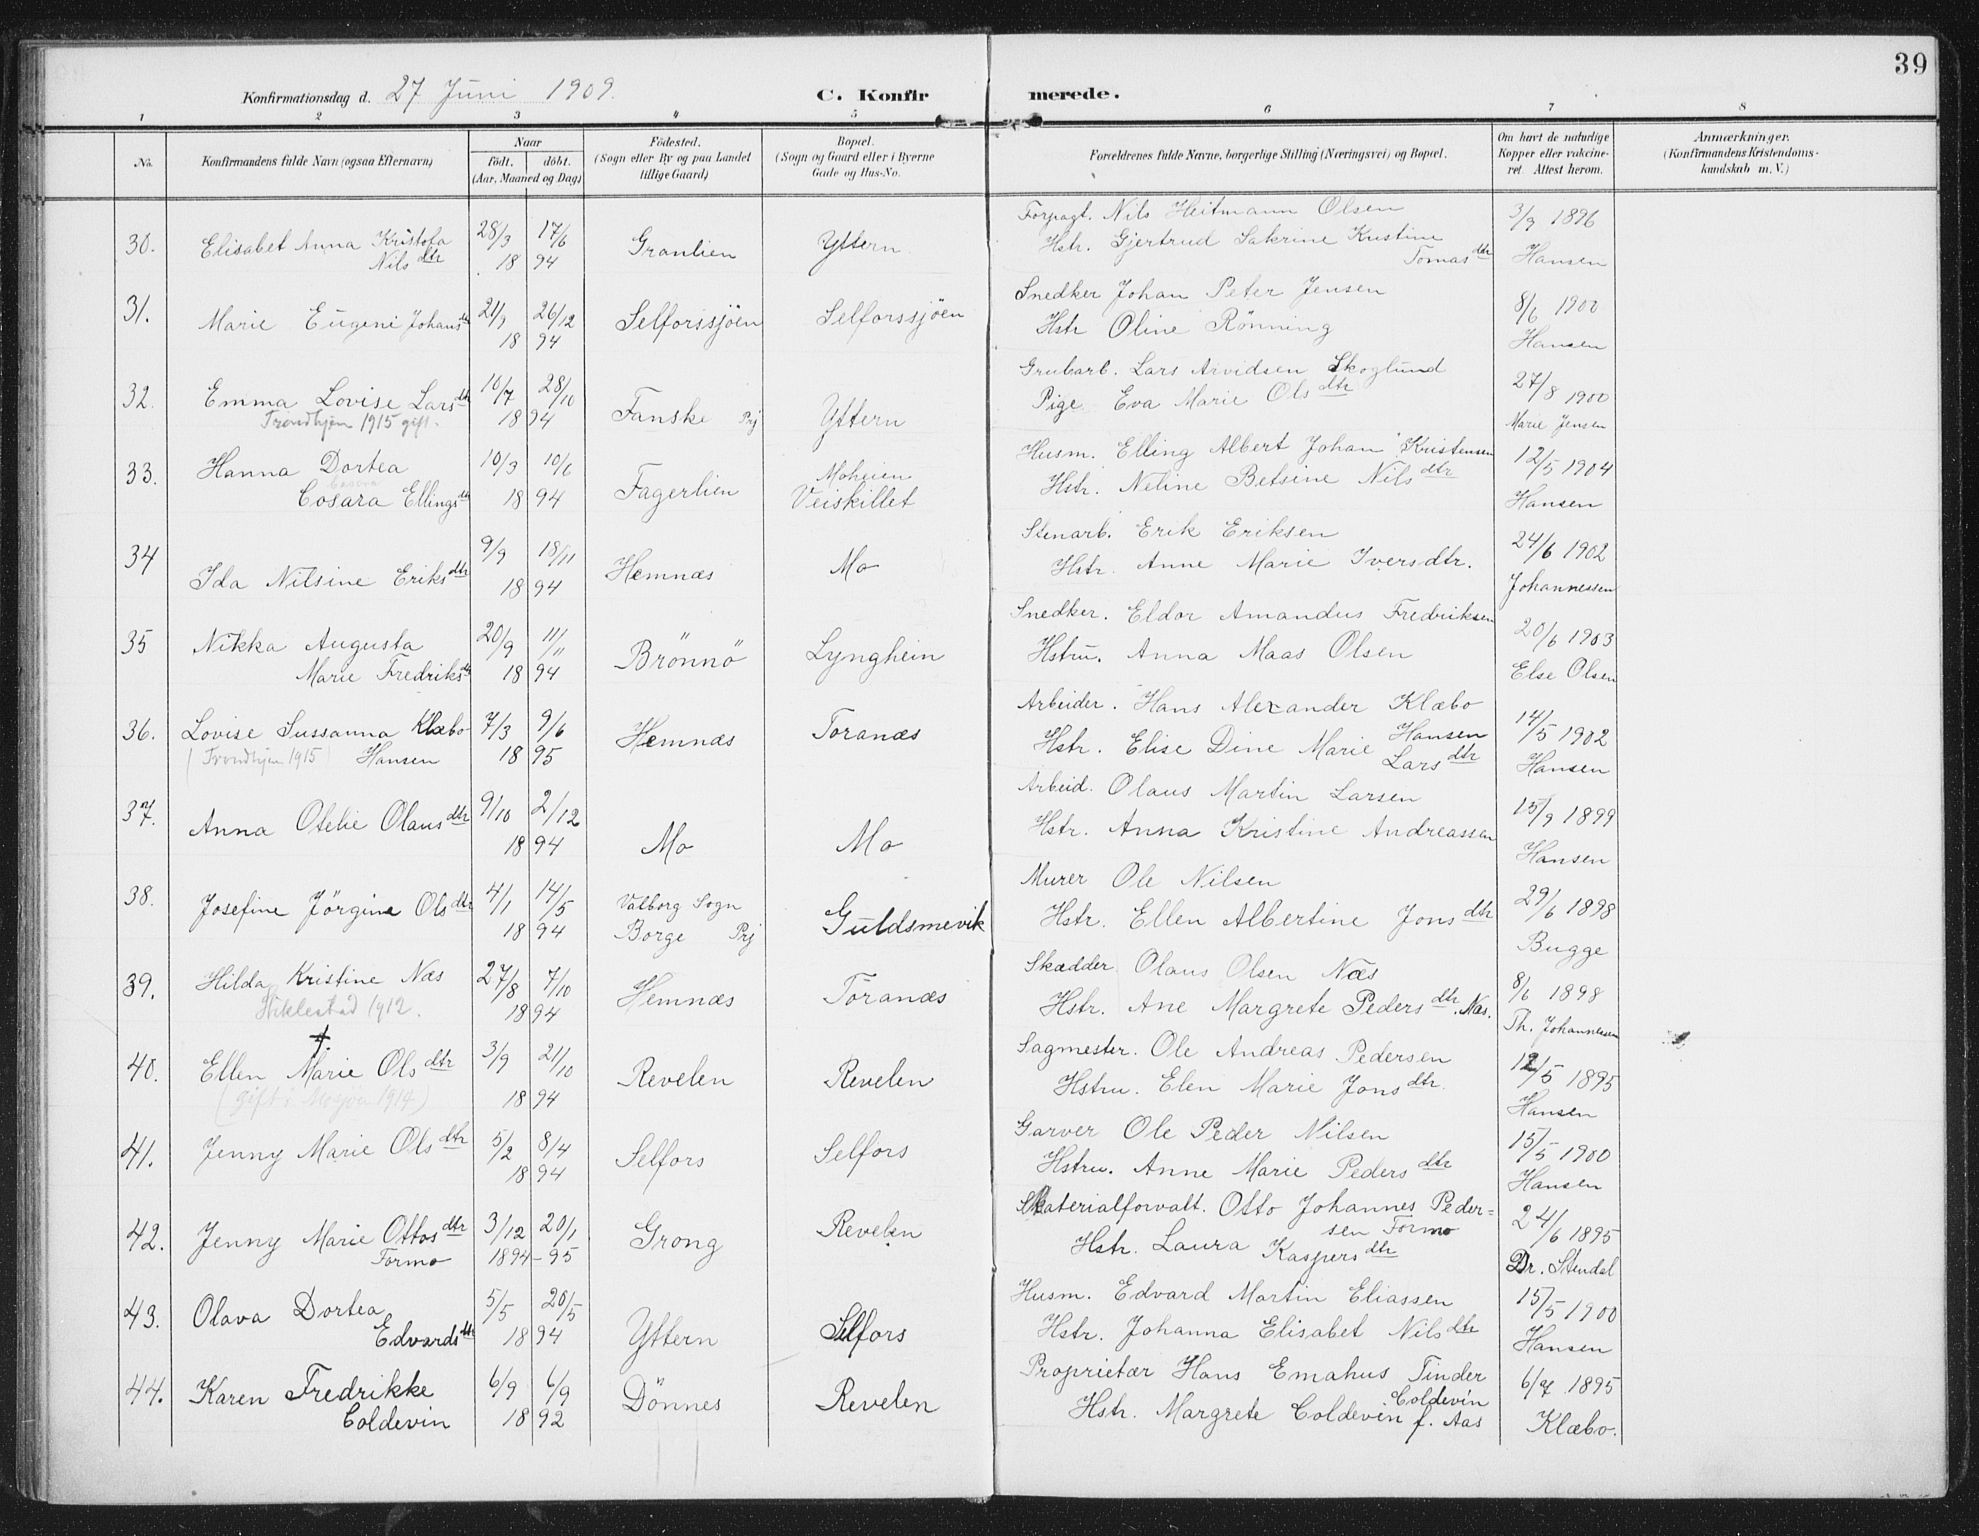 39
Konfirmationsdag d. 27 Juni 1909.
C. Konfirmerede.
1 2 3 4 5 6 7 8
No.
Konfirmandens fulde Navn (ogsaa Efternavn)
Naar
födt. döbt.
(Aar, Maaned og Dag)
Födested.
(Sogn eller By og paa Landet
tillige Gaard)
Bopæl.
(Sogn og Gaard eller i Byerne
Gade og Hus-No.
Forældrenes fulde Navne, borgerlige Stilling (Næringsvei) og Bopæl.
Om havt de naturlige
Kopper eller vakcine-
ret. Attest herom.
Anmærkninger.
(Konfirmandens Kristendoms-
kundskab m. V.)
30. Elisabet Anna Kristofa 28/3 17/6 Granlien Yttern Forpagt. Nils Heitmann Olsen 3/9 1896
Nilsdtr 18 94 Hstr. Gjertrud Sakrine Kristine
Tomasdtr Hansen
31. Marie Eugeni Johansdtr 21/9 26/12 Selforssjöen Selforssjöen Snedker Johan Peter Jensen 8/6 1900
18 94 Hstr Oline Rönning Hansen
32. Emma Lovise Larsdtr 10/7 28/10 Fanske Prj Yttern Grubarb. Lars Arvidsen Skoglund 27/8 1900
Trondhjem 1915 gift. 18 94 Pige Eva Marie Olsdtr Marie Jensen
33. Hanna Dortea 10/3 10/6 Fagerlien Moheien Husm. Elling Albert Johan Kristensen 12/5 1904
Cosara
Cosara Ellingsdtr 18 94 Veiskillet Hstr. Neline Betsine Nilsdtr Hansen
34 Ida Nilsine Eriksdtr 9/9 18/11 Hemnæs Mo Stenarb. Erik Eriksen 24/6 1902
18 94 Hstr. Anne Marie Iversdtr. Johannessen
35 Nikka Augusta 20/9 11/11 Brönnö Lynghein Snedker. Eldor Amandus Fredriksen 20/6 1903
Marie Fredriksdtr 18 94 Hstru. Anna Maas Olsen Else Olsen
36. Lovise Sussanna Klæbo- 7/3 9/6 Hemnæs Toranæs Arbeider. Hans Alexander Klæbo 14/5 1902
(Trondhjem 1915) Hansen 18 95 Hstr. Elise Dine Marie Hansen
Larsdtr Hansen
37. Anna Otelie Olausdtr 9/10 2/12 Mo Mo Arbeid. Olaus Martin Larsen 15/9 1899
18 94 Hstr. Anna Kristine Andreassen Hansen
38. Josefine Jörgine Olsdtr 4/1 14/5 Valborg Sogn Guldsmevik Murer Ole Nilsen 29/6 1898
18 94 Borge Prj Hstr. Ellen Albertine Jonsdtr Bugge
39. Hilda Kristine Næs 27/8 7/10 Hemnæs Toranæs Skædder Olaus Olsen Næs 8/6 1898
Stiklestad 1912. 18 94 Hstr. Ane Margrete Pedersdtr. Næs. Th. Johannessen
40. Ellen Marie Olsdtr 3/9 21/10 Revelen Revelen Sagmester. Ole Andreas Pedersen 12/5 1895
(gift i Mosjöen 1914) 18 94 Hstru. Elen Marie Jonsdtr. Hansen
41. Jenny Marie Olsdtr 5/2 8/4 Selfors Selfors Garver Ole Peder Nilsen 15/5 1900
18 94 Hstru. Anne Marie Pedersdtr Hansen
42. Jenny Marie Ottosdtr 3/12 20/1 Grong Revelen Materialforvalt. Otto Johannes Peder- 24/6 1895
Formo 1894-95 sen Formo
Hstr. Laura Kaspersdtr Dr. Stendal
43. Olava Dortea 5/5 20/5 Yttern Selfors Husm. Edvard Martin Eliassen 15/5 1900
Edvardsdtr 18 94 Hstr. Johanna Elisabet Nilsdtr Hansen
44. Karen Fredrikke 6/9 6/9 Dönnes Revelen Proprietær Hans Emahus Tinder 6/7 1895
Coldevin 18 92 Coldevin
Hstr. Margrete Coldevin f. Aas Klæbo.